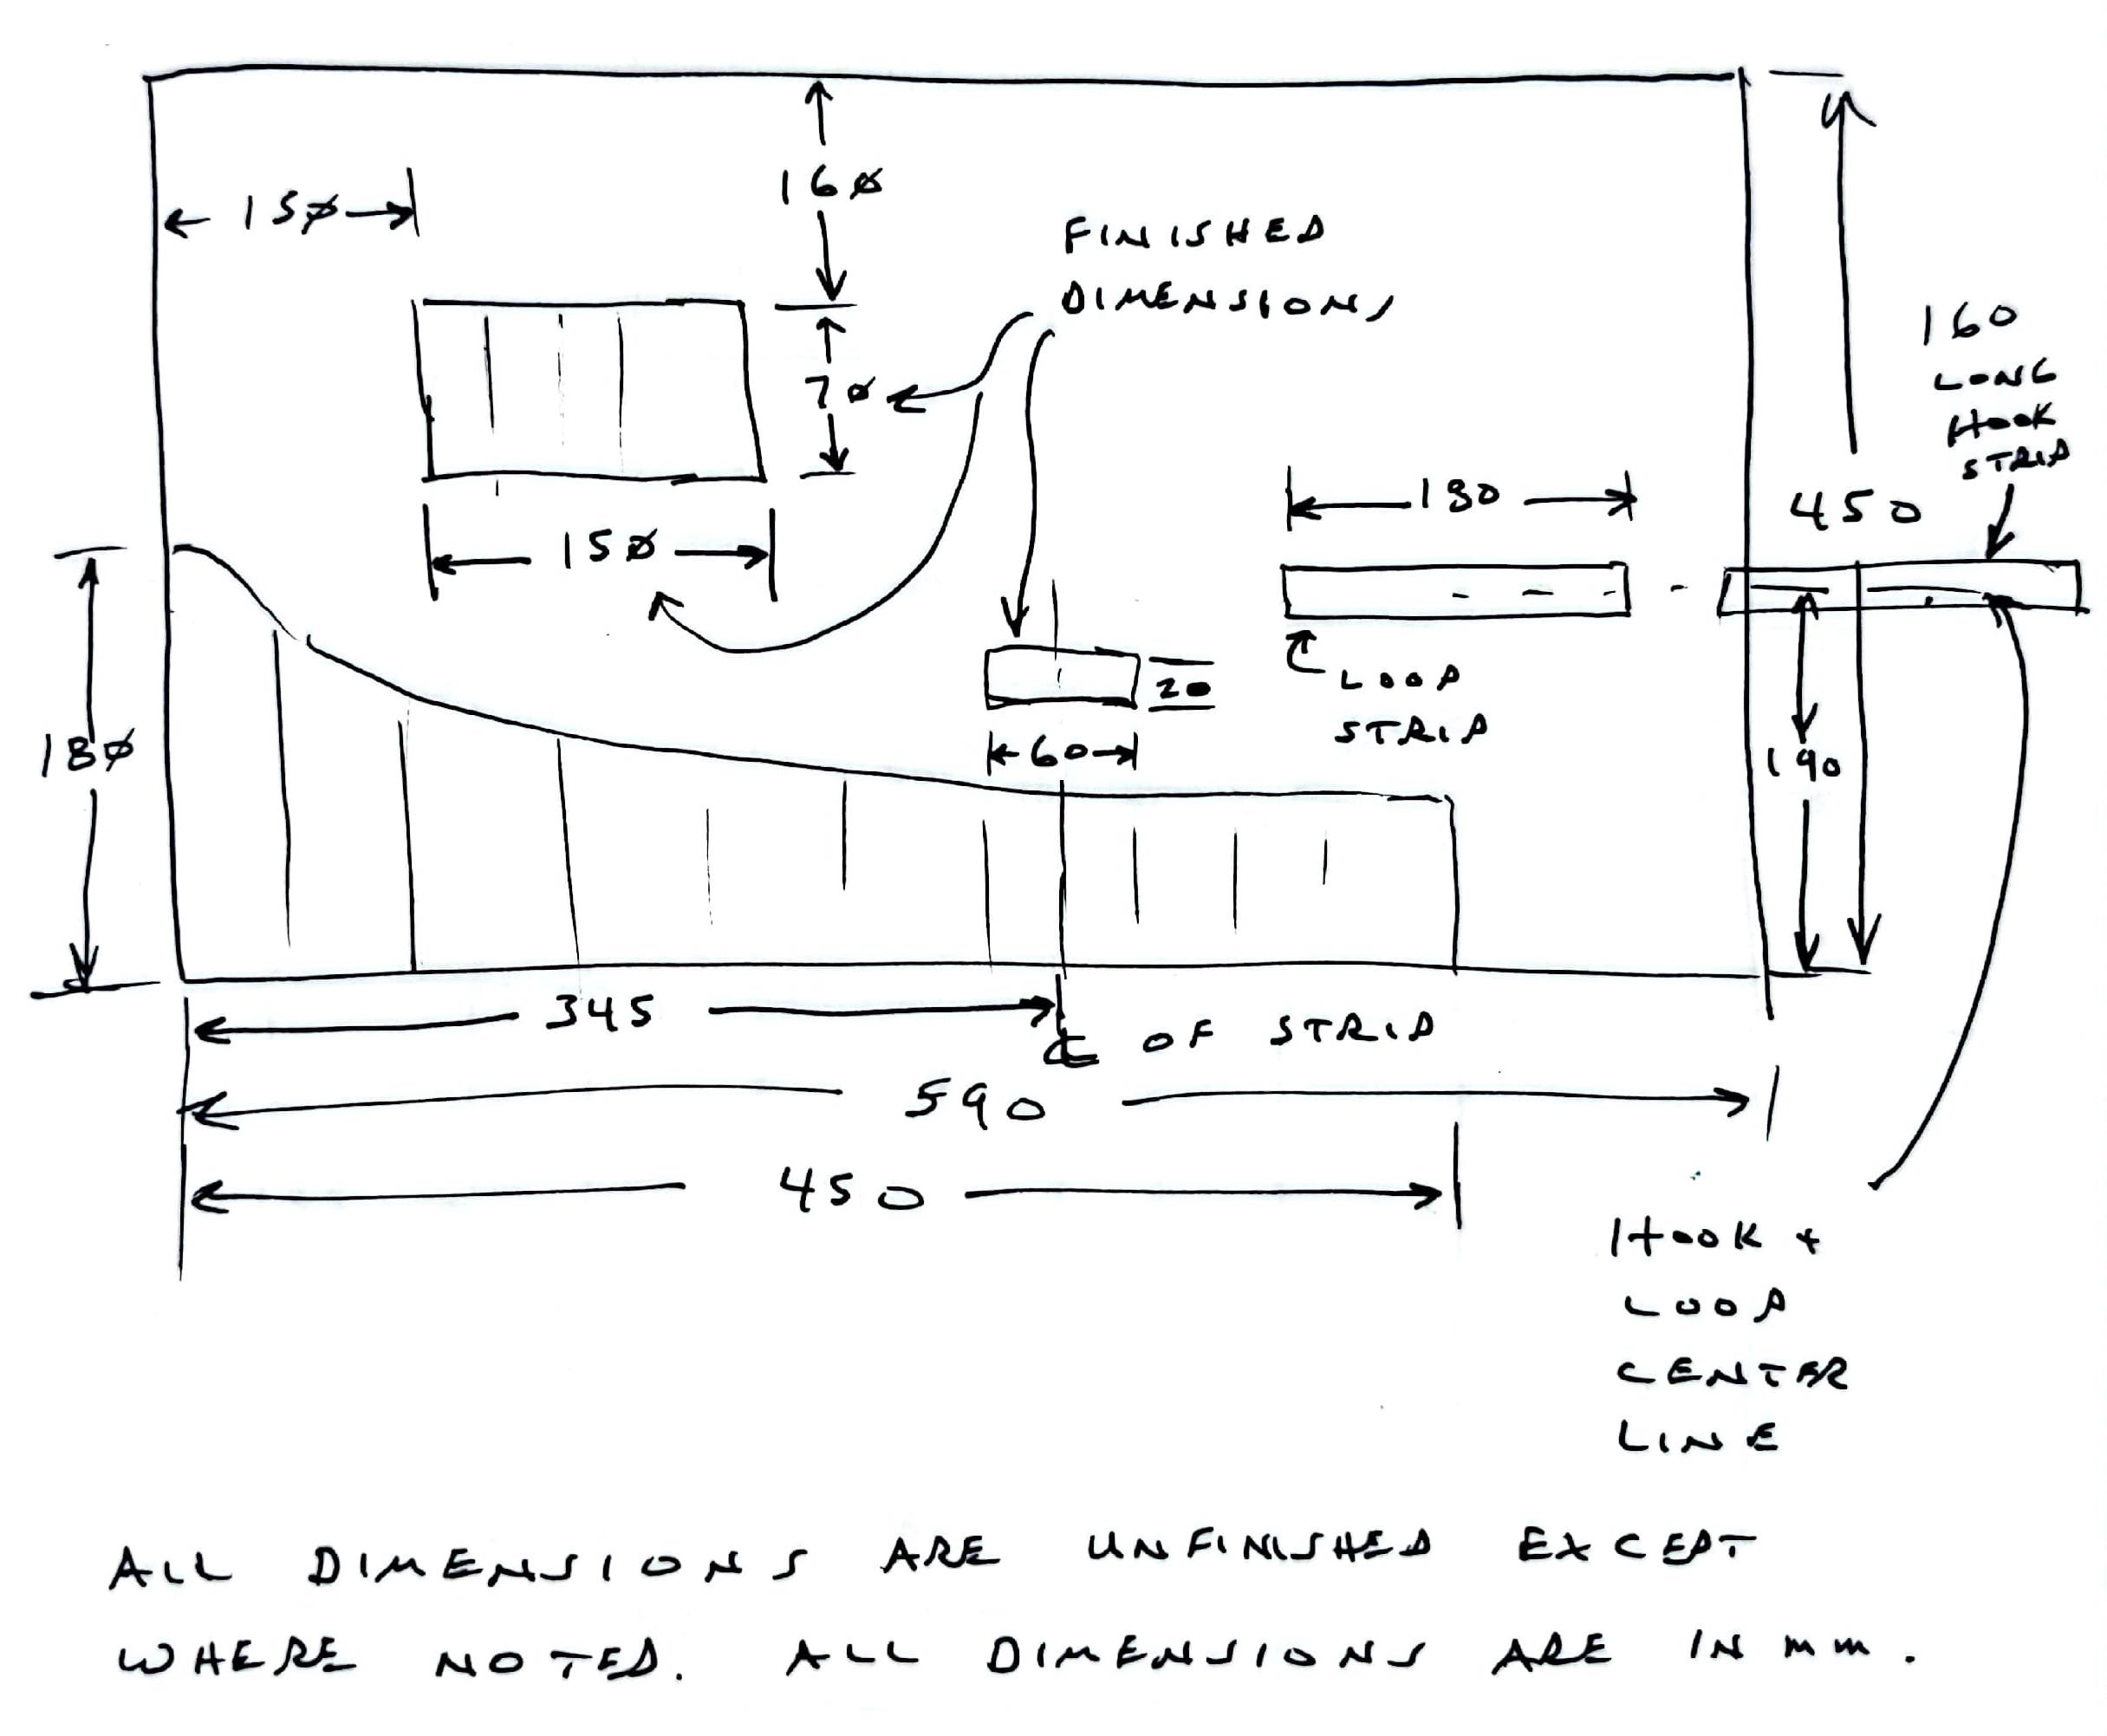 16Ø
15Ø
FINISHED
DIMENSIONS
160
LONG
HOOK
STRIP
7Ø
180
450
15Ø
20
LOOP
STRIP
18Ø
60
190
345
℄ OF STRIP
590
450
HOOK +
LOOP
CENTER
LINE
ALL DIMENSIONS ARE UNFINISHED EXCEPT
WHERE NOTED. ALL DIMENSIONS ARE IN mm.